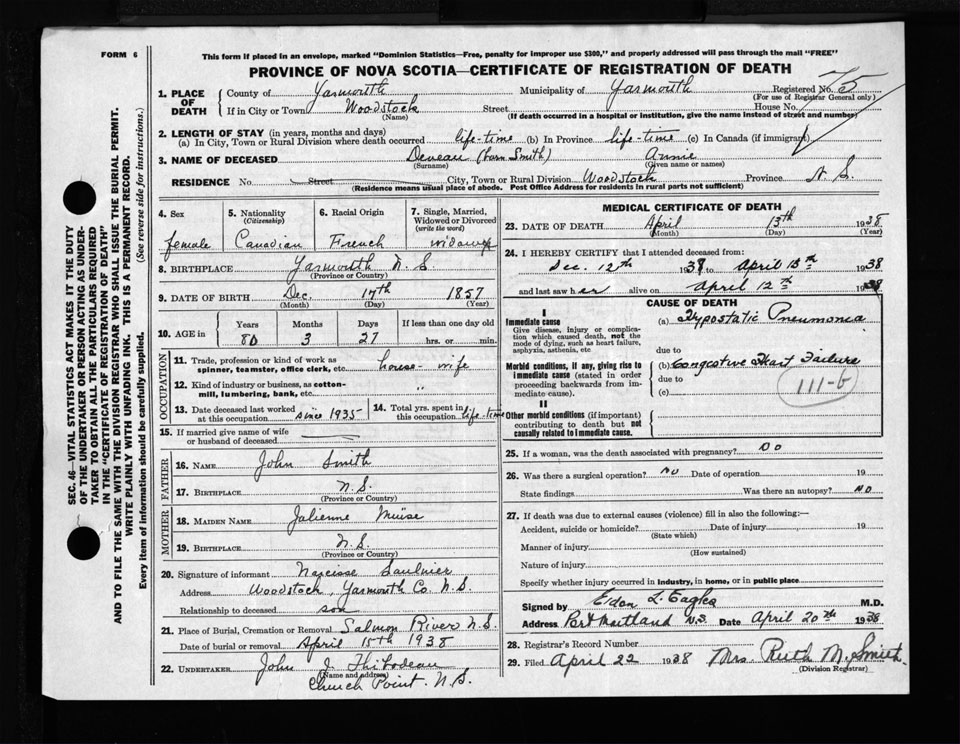 FORM 6
This form if placed in an envelope, marked "Dominion Statistics—Free, penalty for improper use $300," and properly addressed will pass through the mail "FREE"
PROVINCE OF NOVA SCOTIA—CERTIFICATE OF REGISTRATION OF DEATH
SEC. 46—VITAL STATISTICS ACT MAKES IT THE DUTY
OF THE UNDERTAKER OR PERSON ACTING AS UNDER-
TAKER TO OBTAIN ALL THE PARTICULARS REQUIRED
IN THE "CERTIFICATE OF REGISTRATION OF DEATH"
AND TO FILE THE SAME WITH THE DIVISION REGISTRAR WHO SHALL ISSUE THE BURIAL PERMIT.
WRITE PLAINLY WITH UNFADING INK. THIS IS A PERMANENT RECORD.
Every item of information should be carefully supplied. (See reverse side for instructions.)
1. PLACE OF DEATH
County of Yarmouth Municipality of Yarmouth Registered No. 75
(For use of Registrar General only)
If in City or Town Woodstock Street House No.
(Name) (If death occurred in a hospital or institution, give the name instead of street and number)
2. LENGTH OF STAY (in years, months and days)
(a) In City, Town or Rural Division where death occurred life-time (b) In Province life-time (c) In Canada (if immigrant)
3. NAME OF DECEASED Deveau (born Smith) Annie
(Surname) (Given name or names)
RESIDENCE No Street City, Town or Rural Division Woodstock Province N S.
(Residence means usual place of abode. Post Office Address for residents in rural parts not sufficient)
4. Sex
female
5. Nationality
(Citizenship)
Canadian
6. Racial Origin
French
7. Single, Married,
Widowed or Divorced
(write the word)
widow
8. BIRTHPLACE Yarmouth N. S.
(Province or Country)
9. DATE OF BIRTH Dec. 17th 1857
(Month) (Day) (Year)
10. AGE in
Years Months Days If less than one day old
80 3 27 hrs. or min.
OCCUPATION
11. Trade, profession or kind of work as
spinner, teamster, office clerk, etc. house-wife
12. Kind of industry or business, as cotton-
mill, lumbering, bank, etc. "
13. Date deceased last worked
at this occupation since 1935
14. Total yrs. spent in
this occupation life-time
15. If married give name of wife
or husband of deceased
FATHER
16. NAME John Smith
17. BIRTHPLACE N.S.
(Province or Country)
MOTHER
18. MAIDEN NAME Julienne Muise
19. BIRTHPLACE N.S.
(Province or Country)
20. Signature of informant Narcisse Saulnier
Address Woodstock, Yarmouth Co. N.S.
Relationship to deceased son
21. Place of Burial, Cremation or Removal Salmon River N.S.
Date of burial or removal April 15th 1938
22. UNDERTAKER John J. Thibodeau
(Name and address)
Church Point. N.S.
MEDICAL CERTIFICATE OF DEATH
23. DATE OF DEATH April 13th 1938
(Month) (Day) (Year)
24. I HEREBY CERTIFY that I attended deceased from:
Dec. 12th 1938 to April 13th 1938
and last saw her alive on April 12th 1938
CAUSE OF DEATH
I
Immediate cause
Give disease, injury or complica-
tion which caused death, not the
mode of dying, such as heart failure,
asphyxia, asthenia, etc
(a) Hypostatic Pneumonia
due to
Morbid conditions, if any, giving rise to
immediate cause (stated in order
proceeding backwards from im-
mediate cause).
(b) Congestive Heart Failure
due to
(c)
111-b
II
Other morbid conditions (if important)
contributing to death but not
causally related to immediate cause.
25. If a woman, was the death associated with pregnancy? no
26. Was there a surgical operation? no Date of operation 19
State findings Was there an autopsy? no
27. If death was due to external causes (violence) fill in also the following:—
Accident, suicide or homicide? Date of injury 19
(State which)
Manner of injury
(How sustained)
Nature of injury
Specify whether injury occurred in industry, in home, or in public place
Signed by Eldon L. Eagles M.D.
Address Port Maitland N.S. Date April 20th 1938
28. Registrar's Record Number
29. Filed April 22 1938 Mrs. Ruth M. Smith
(Division Registrar)